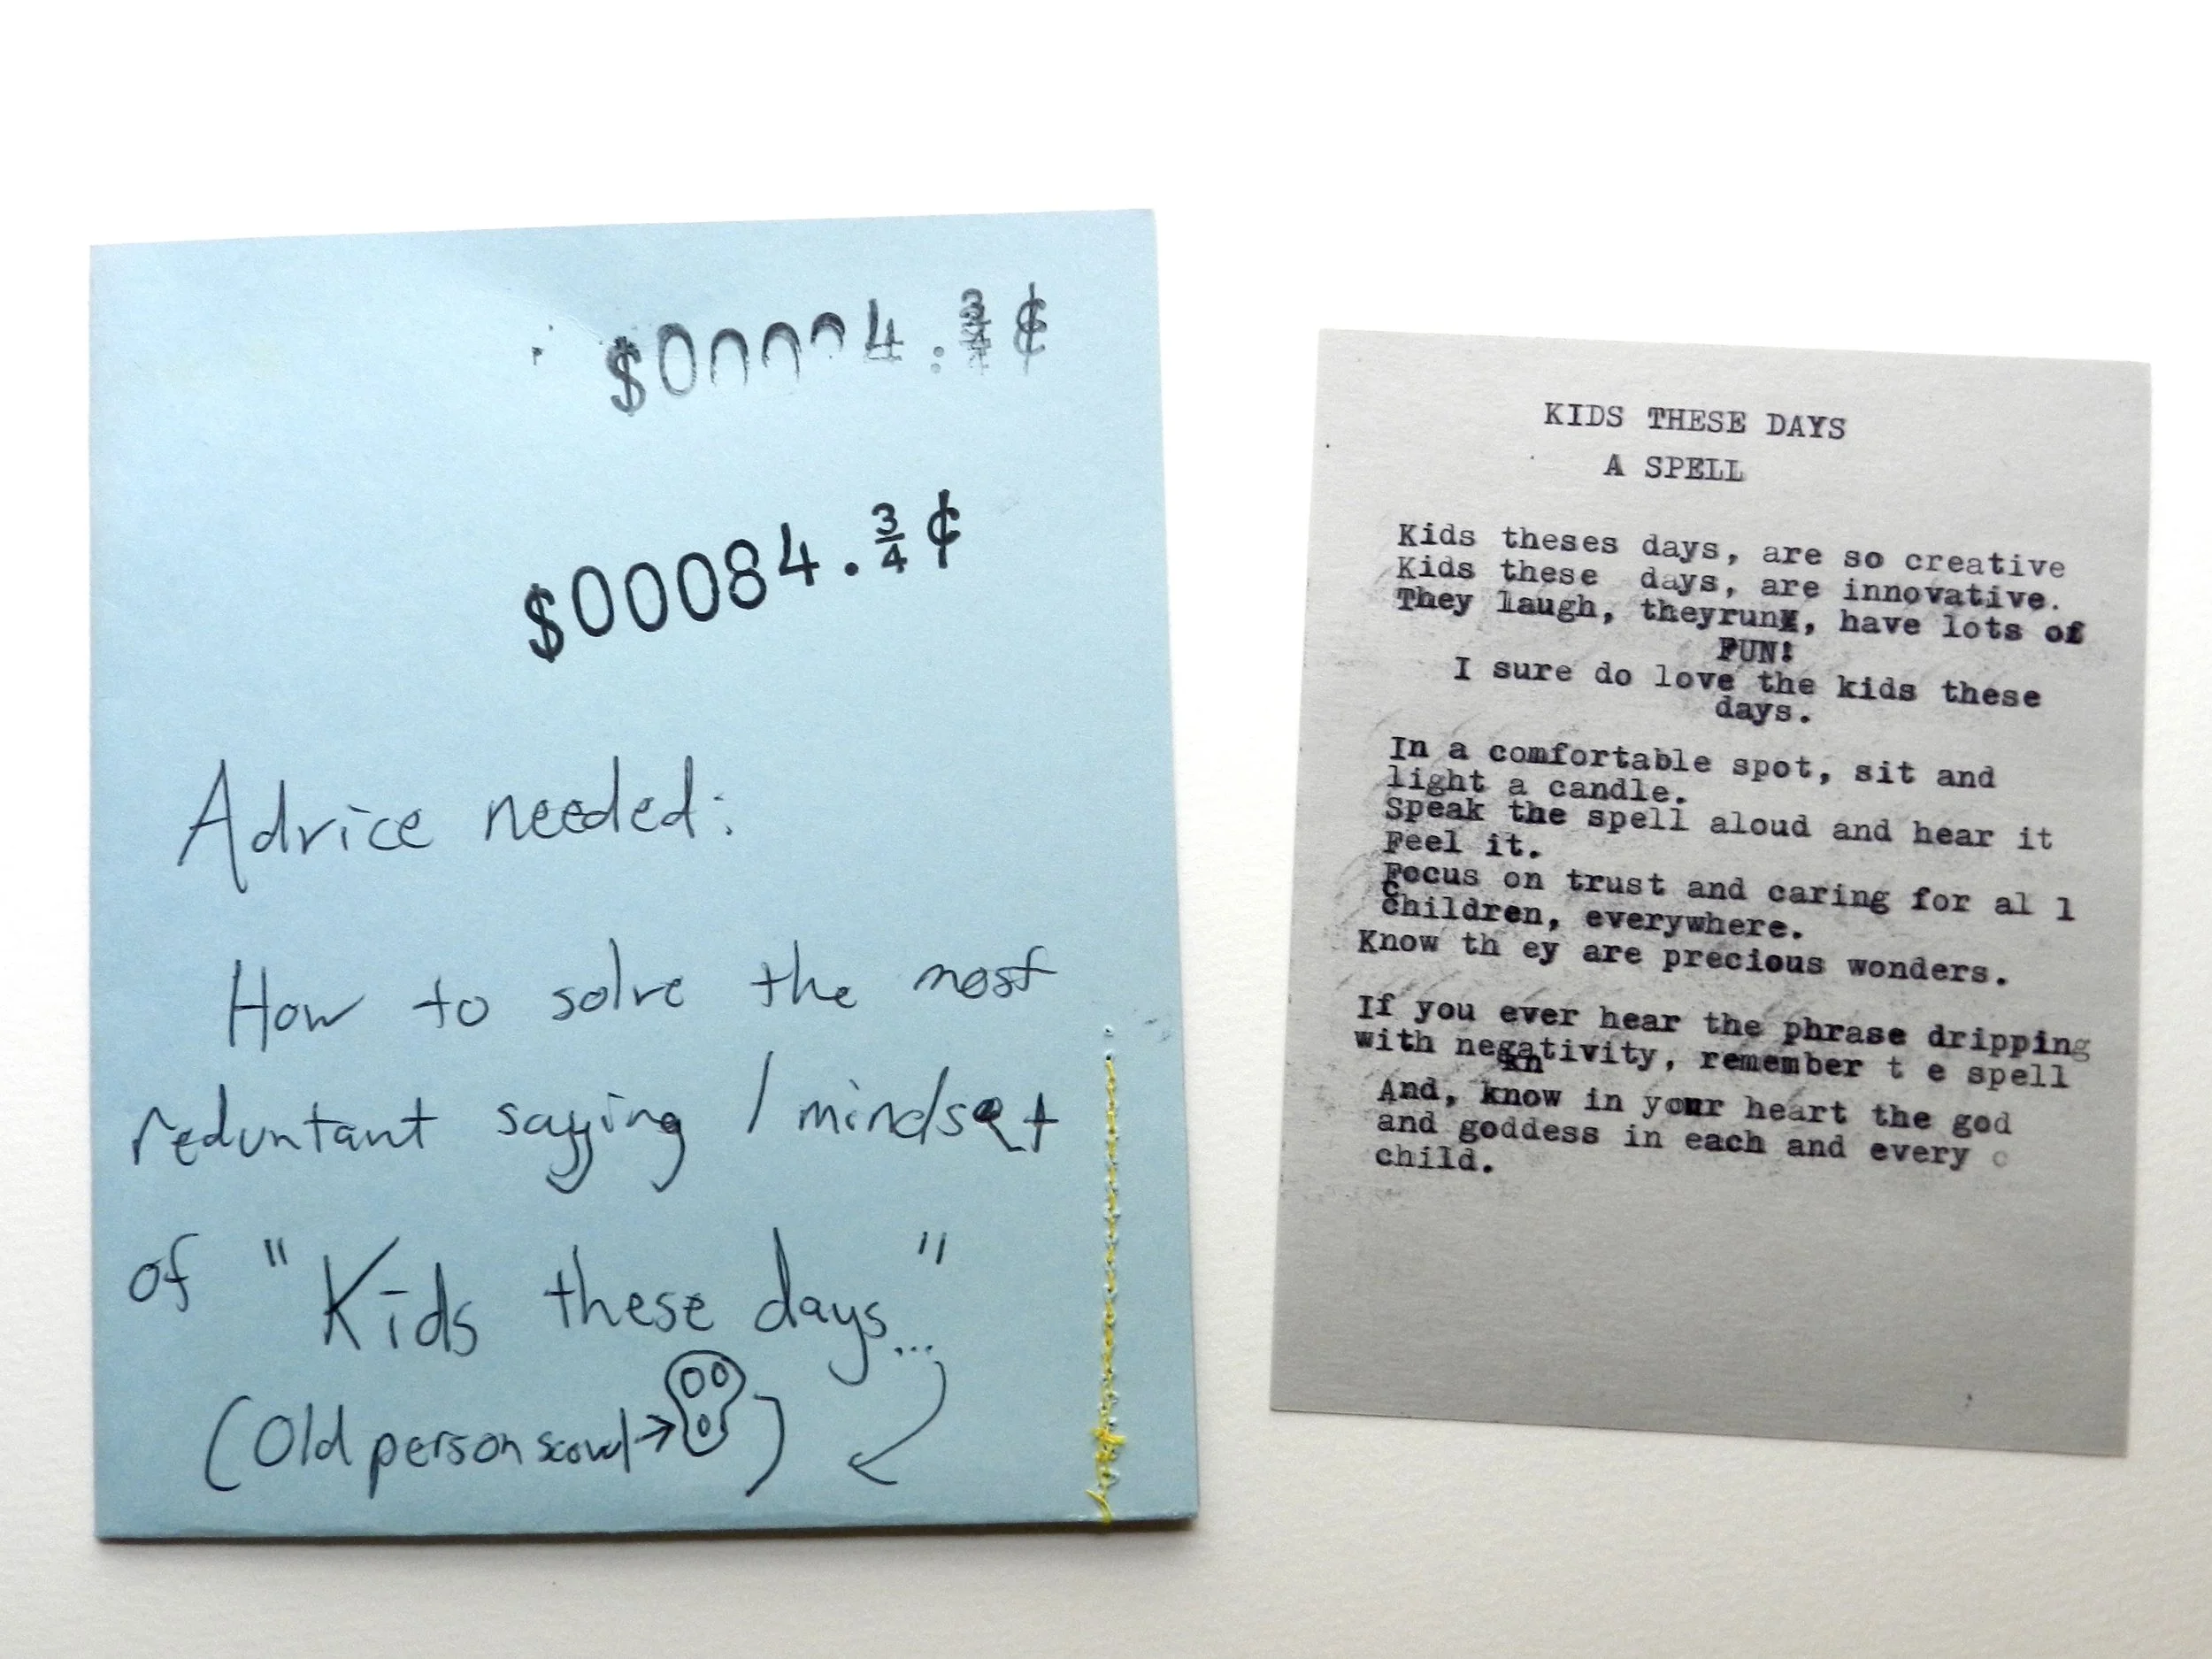 $00004.¾¢
$00084.¾¢
Advice needed:
How to solve the most
reduntant saying / mindset
of "Kids these days..."
(Old person scowl→ )
KIDS THESE DAYS
A SPELL
Kids theses days, are so creative
Kids these days, are innovative.
They laugh, theyrun, have lots of
FUN!
I sure do love the kids these
days.
In a comfortable spot, sit and
light a candle.
Speak the spell aloud and hear it
Feel it.
Focus on trust and caring for al l
children, everywhere.
Know th ey are precious wonders.
If you ever hear the phrase dripping
with negativity, remember t e spell
kn
And, know in your heart the god
and goddess in each and every c
child.